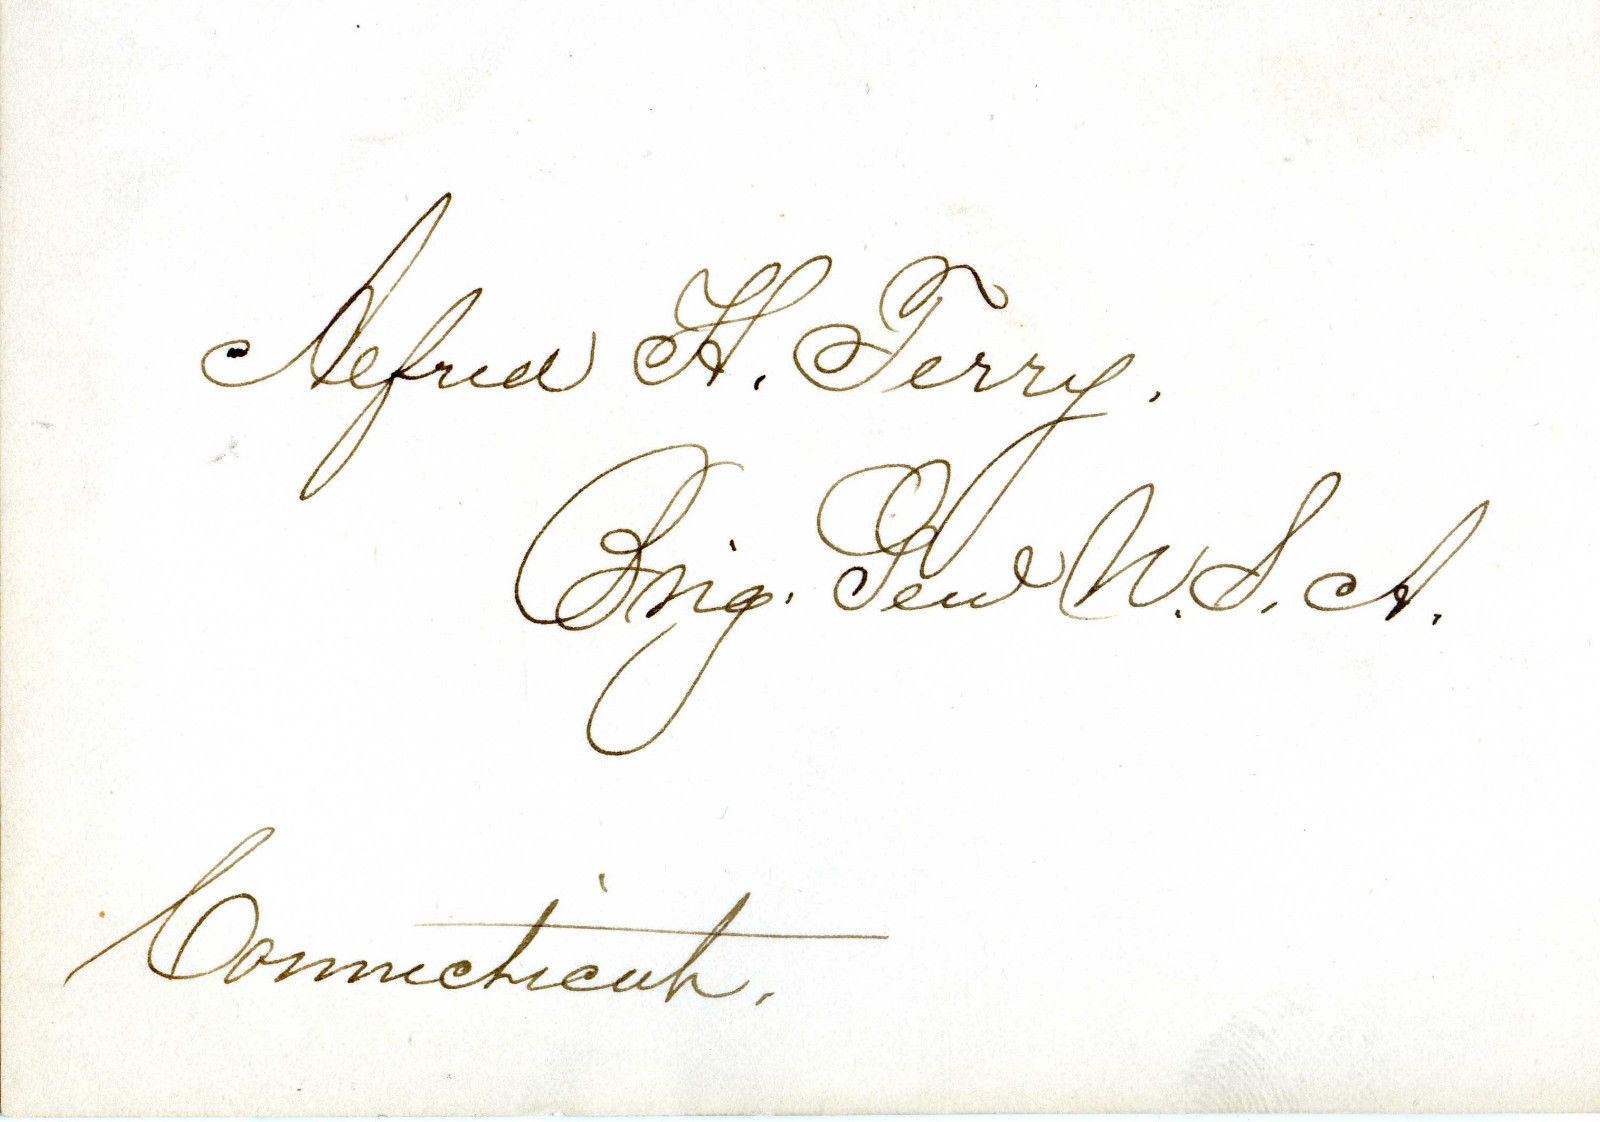 Alfred H. Terry.
Brig. Genl U.S.A.
Connecticut.